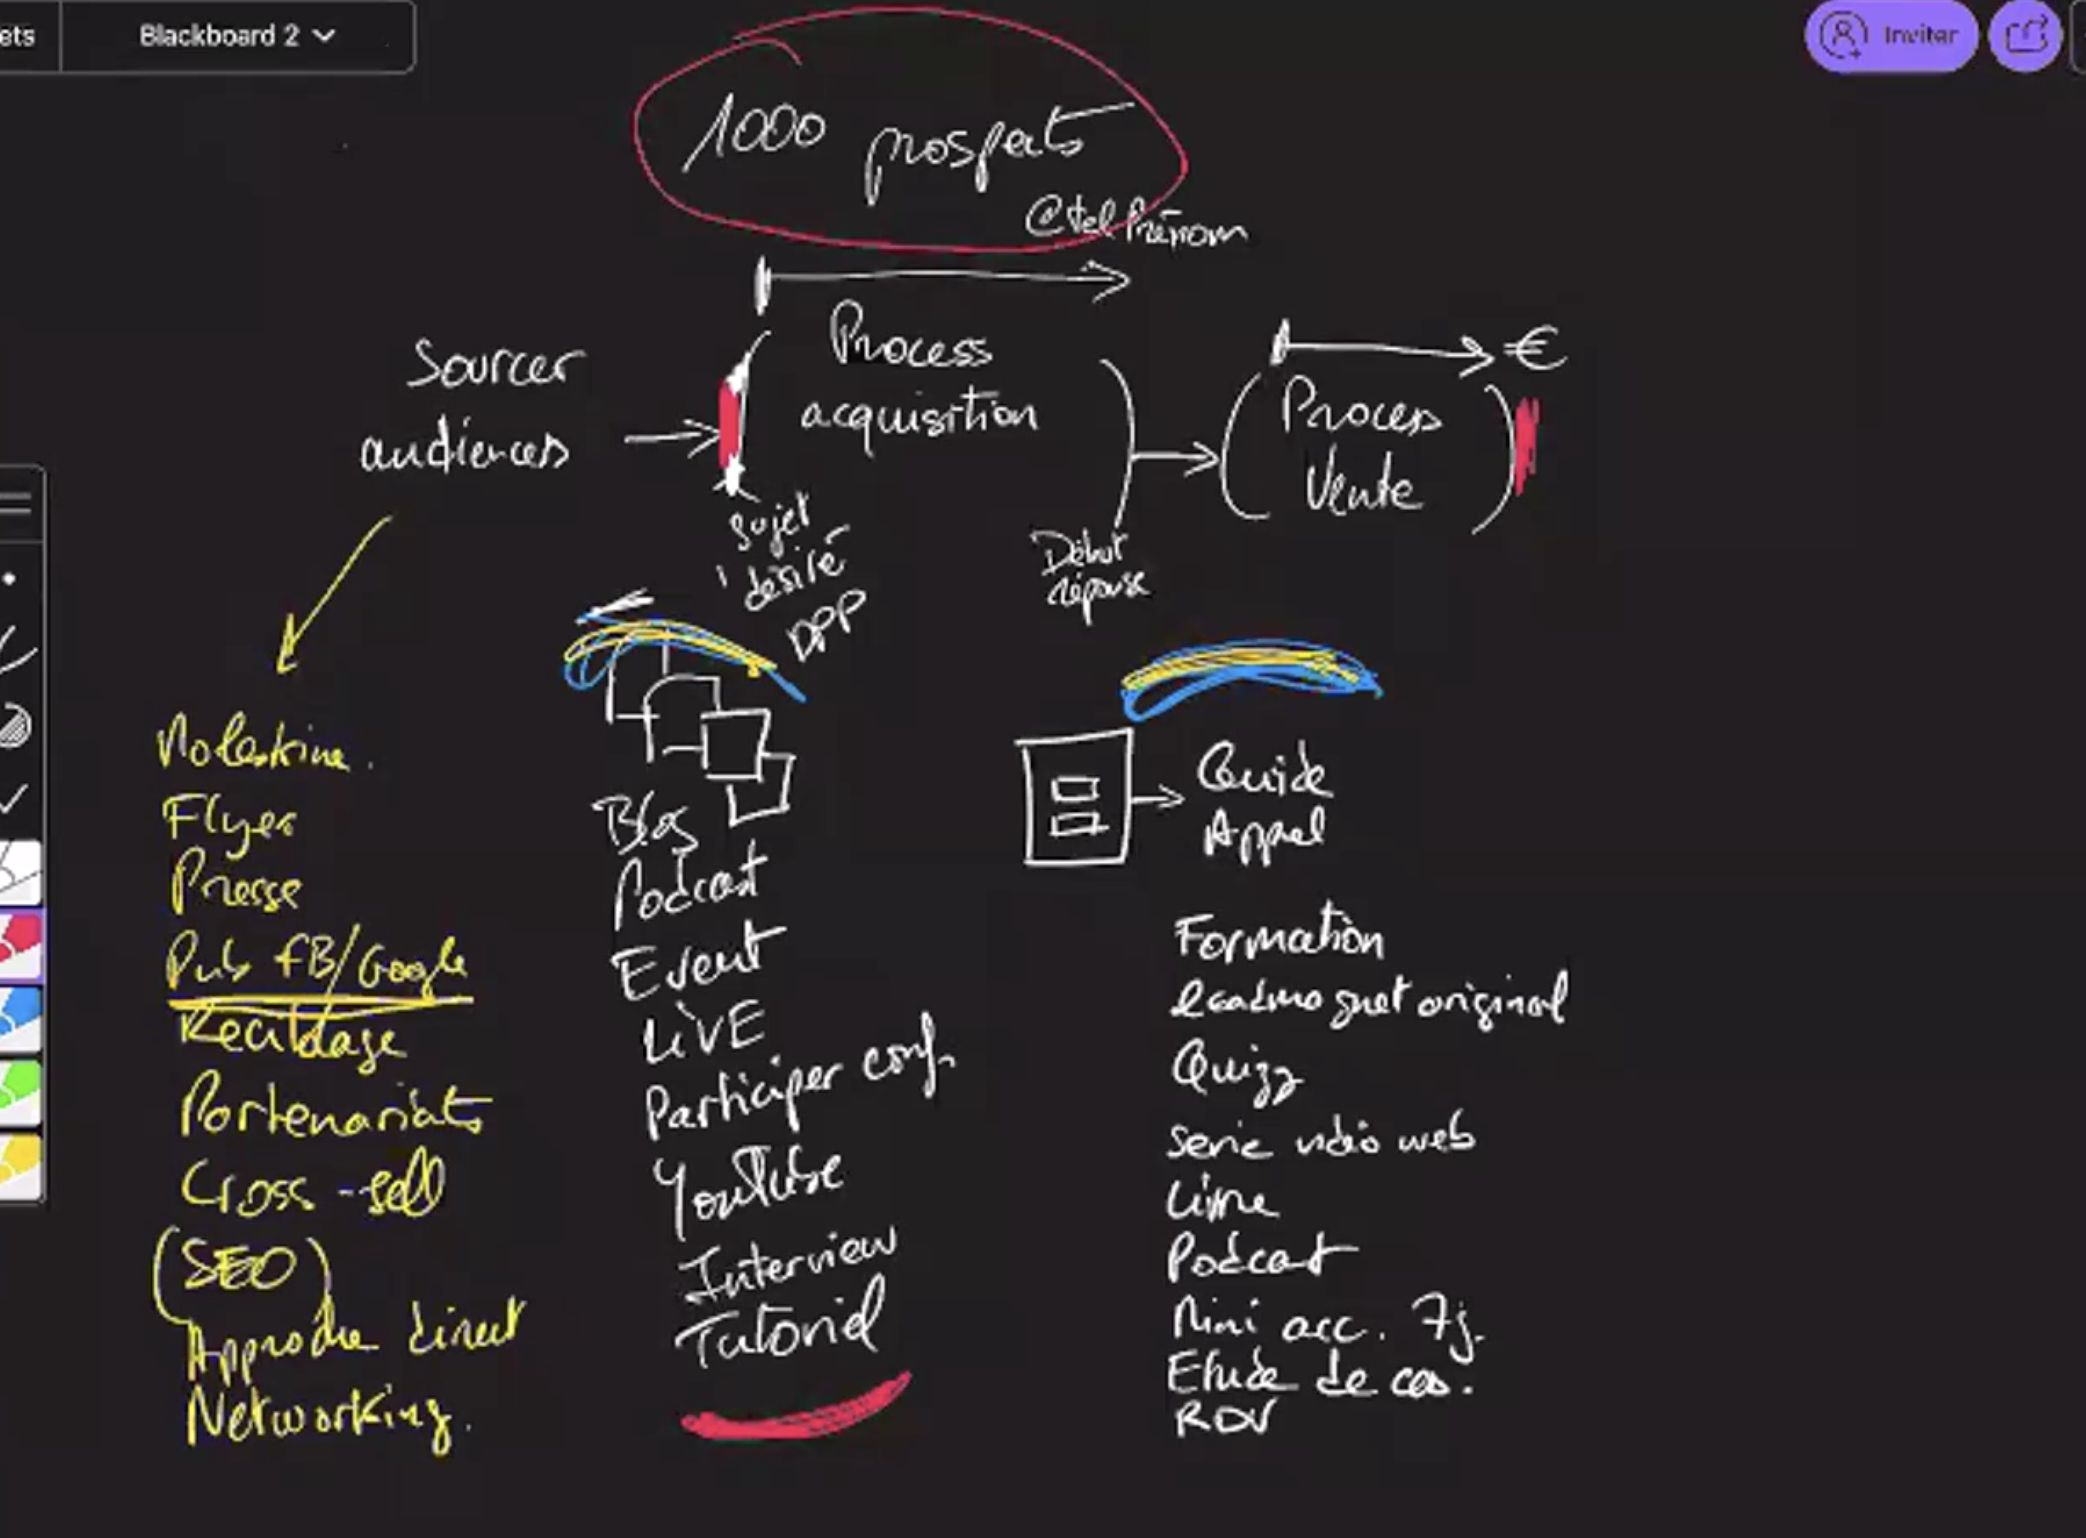 ets
Blackboard 2
Inviter
1000 prospects
@ tel Prénom
Sourcer
audiences
Process
acquisition
€
Process
Vente
Sujet
désiré
DPP
Début
réponse
Moleskine.
Flyer
Presse
Pub FB/Google
Reciblage
Partenariats
Cross-sell
(SEO)
Approche direct
Networking.
Blog
Podcast
Event
LiVE
Participer conf.
YouTube
Interview
Tutoriel
Guide
Appel
Formation
leadmagnet original
Quizz
Serie vidéo web
Livre
Podcast
Mini acc. 7j.
Etude de cas.
RDV